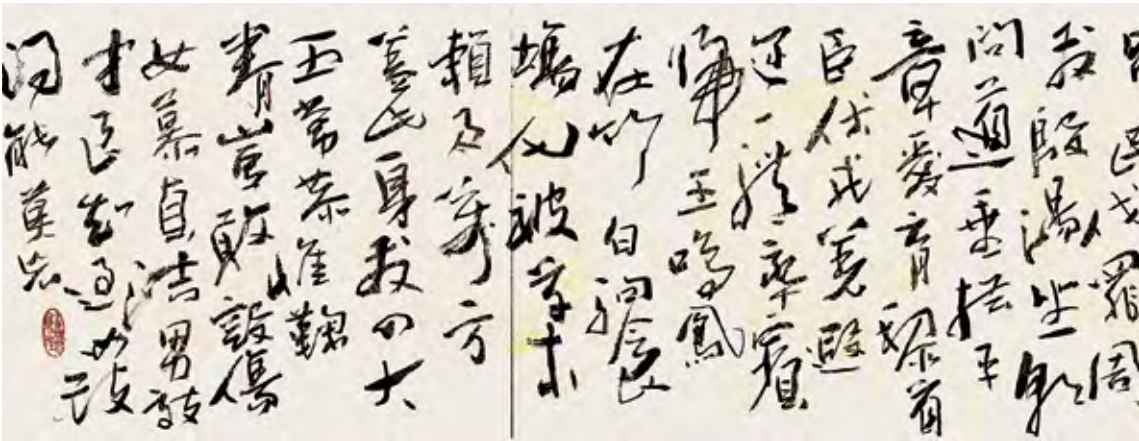 民伐罪周
發殷湯坐朝
問道垂拱平
章愛育黎首
臣伏戎羌遐
邇一體率賓
歸王鳴鳳
在竹白駒食
場化被草木
賴及萬方
蓋此身髮四大
五常恭惟鞠
養豈敢毀傷
女慕貞潔男效
才良知過必改
得能莫忘